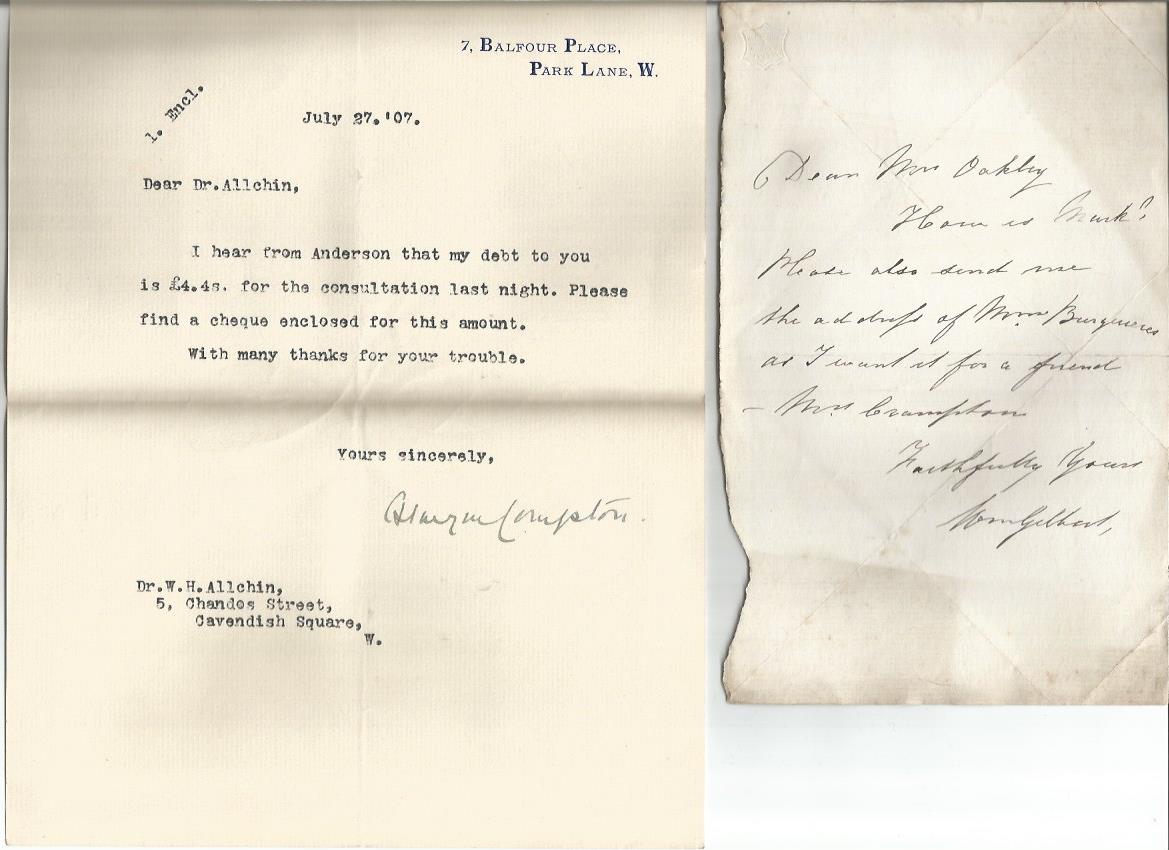 7, BALFOUR PLACE,
PARK LANE, W.
1. Encl.
July 27.'07.
Dear Dr.Allchin,
I hear from Anderson that my debt to you
is £4.4s. for the consultation last night. Please
find a cheque enclosed for this amount.
With many thanks for your trouble.
Yours sincerely,
Compton.
Dr.W.H.Allchin,
5, Chandos Street,
Cavendish Square,
W.
Dear Mrs Oakley
How is Mark?
Please also send me
the address of Mrs
as I want it for a friend
— Mrs Crampton
Faithfully Yours
Wm Gilbert,